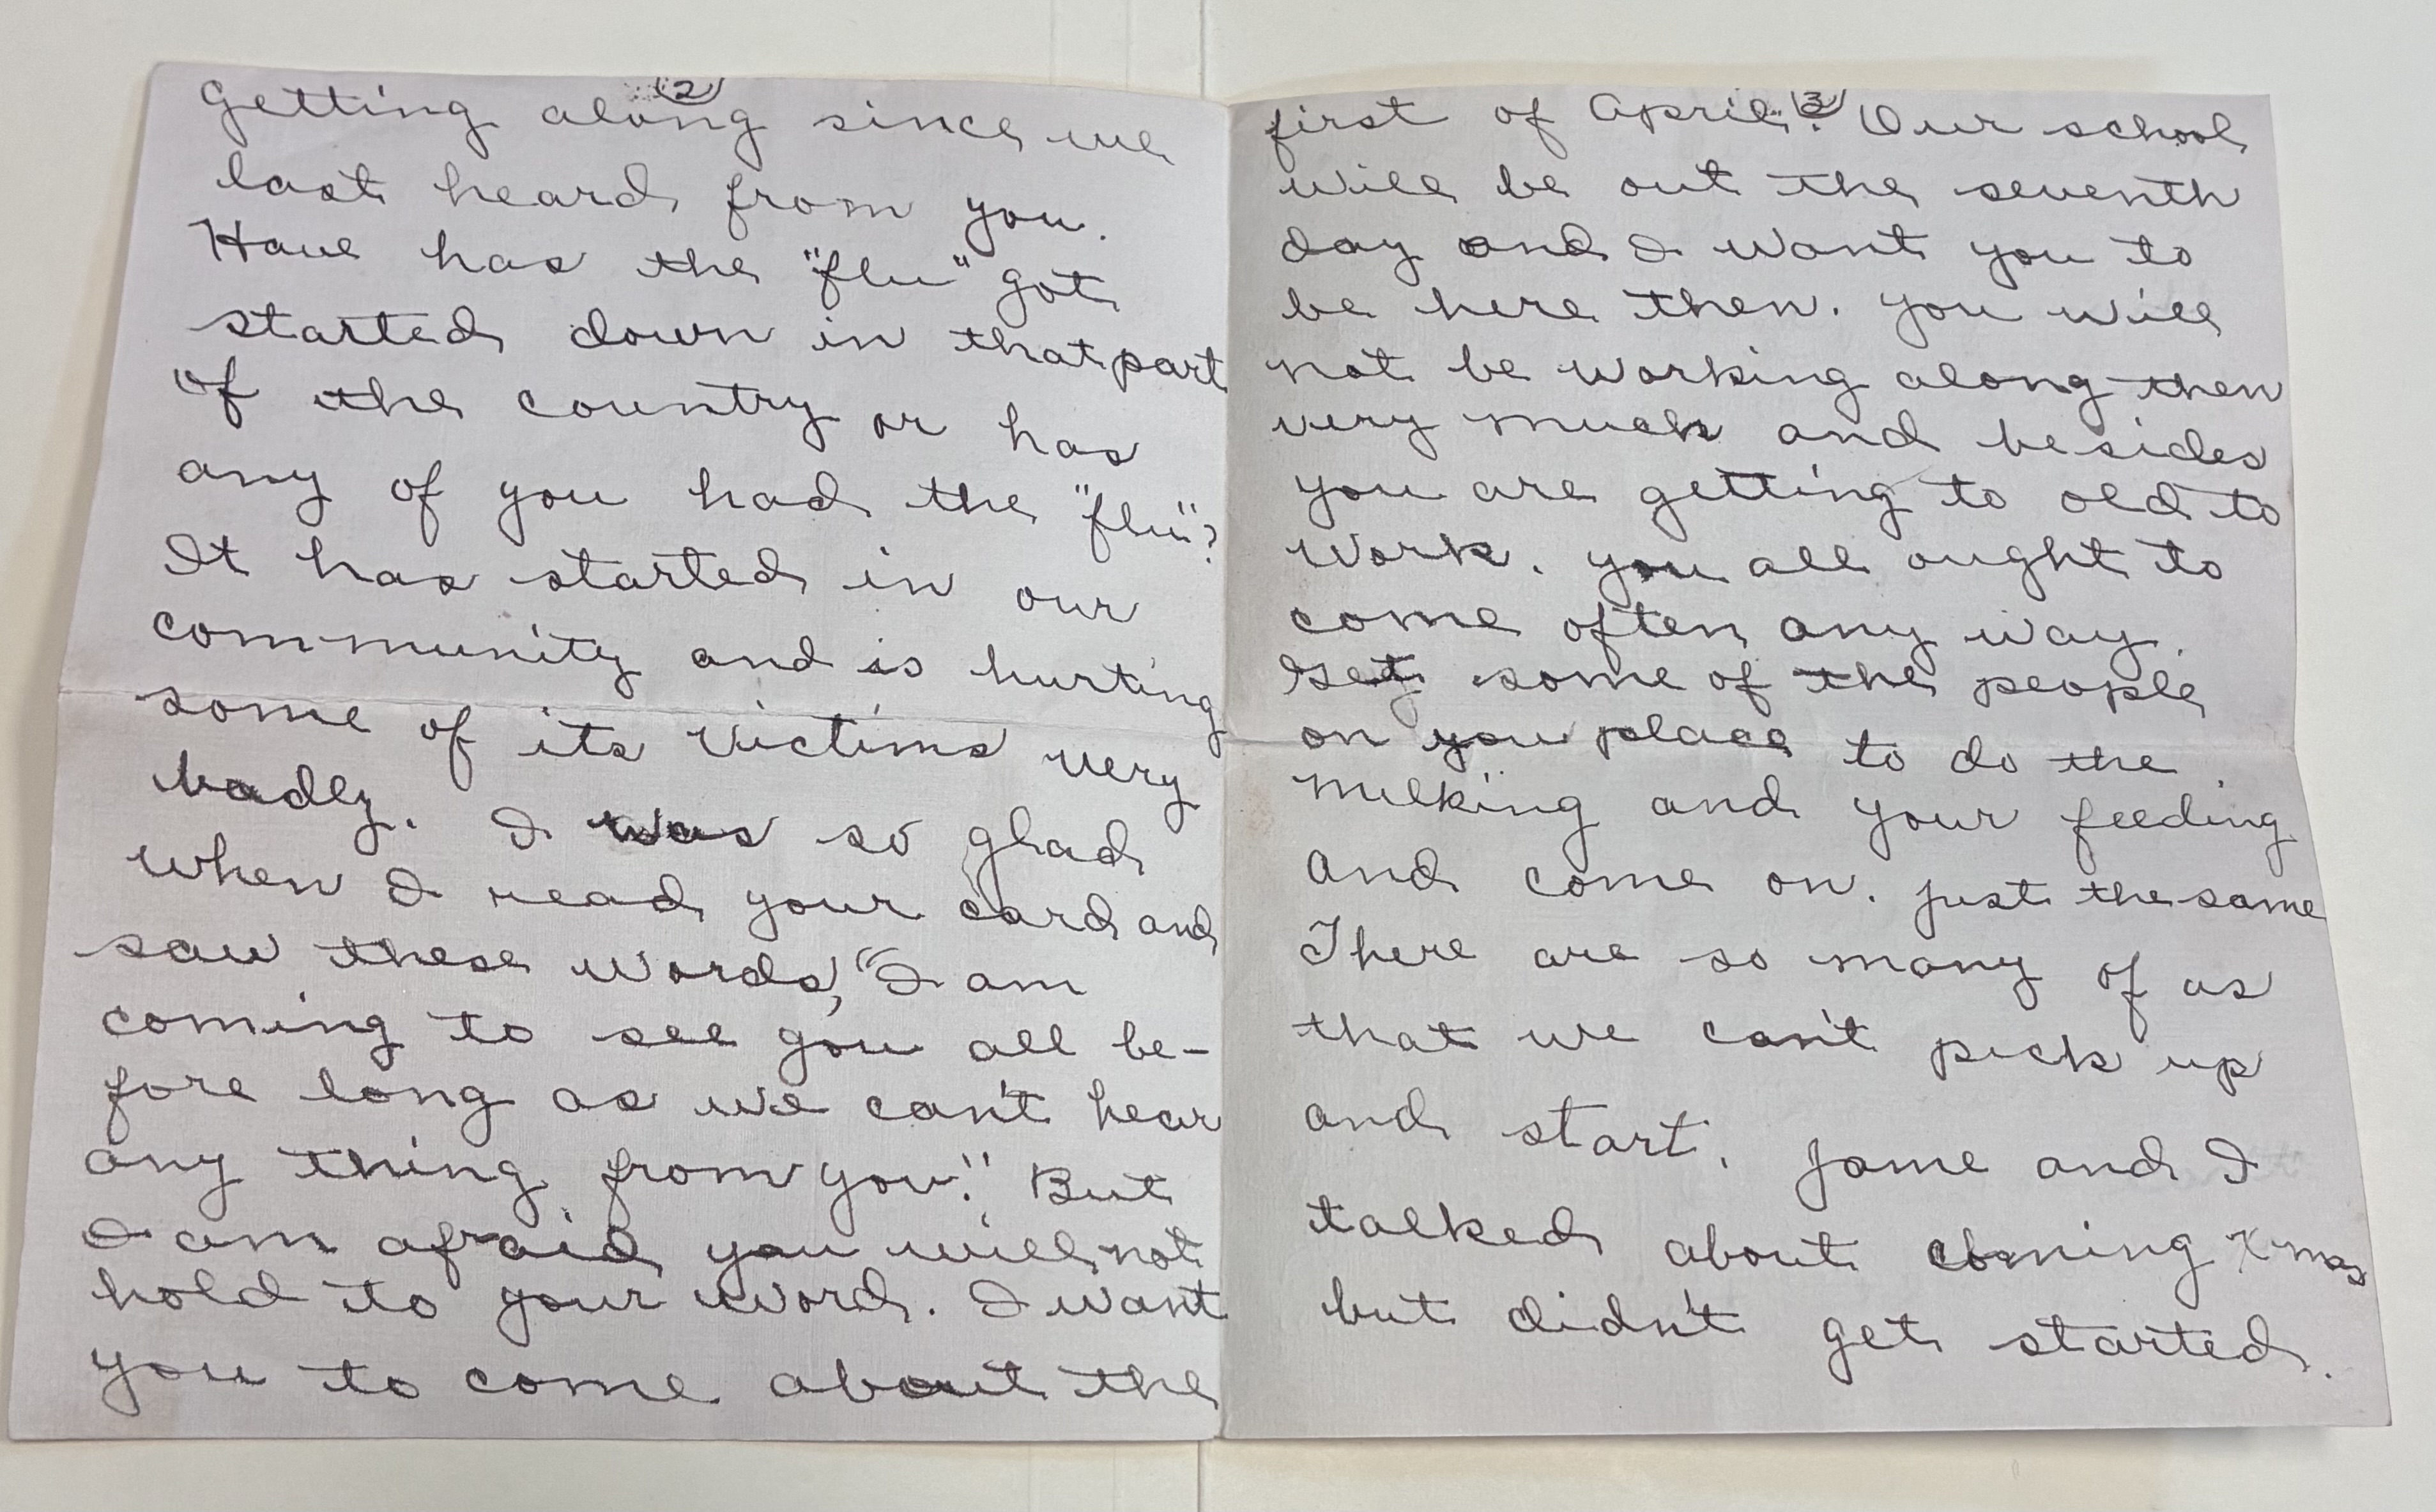 (2)
getting along since we
last heard from you.
Have has the "flu" got
started down in that part
of the country or has
any of you had the "flu"?
It has started in our
community and is hurting
some of its victims very
badly. I was so glad
when I read your card and
saw these words, "I am
coming to see you all be-
fore long as we can't hear
any thing from you." But
I am afraid you will not
hold to your word. I want
you to come about the
(3)
first of April. Our school
will be out the seventh
day and I want you to
be here then. You will
not be working along then
very much and besides
you are getting to old to
work. You all ought to
come often any way.
Get some of the people
on you place to do the
milking and your feeding
and come on. just the same
There are so many of us
that we can't pick up
and start. Jame and I
talked about coming Xmas
but didn't get started.